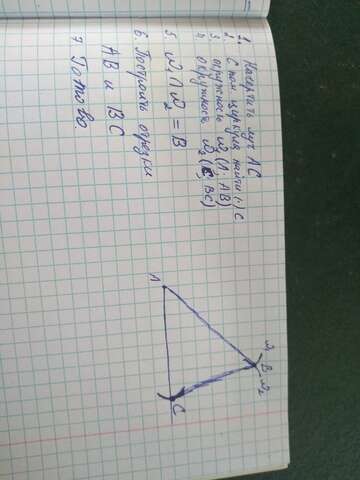 1. Начертить луч АС
2. С пом. циркуля найти (·) С
3. окружность ω₁ (А; АВ)
4. окружность ω₂ (С; ВС)
5. ω₁ ∩ ω₂ = В
6. Построить отрезки
АВ и ВС
7. Готово
ω₁
В
ω₂
А
С